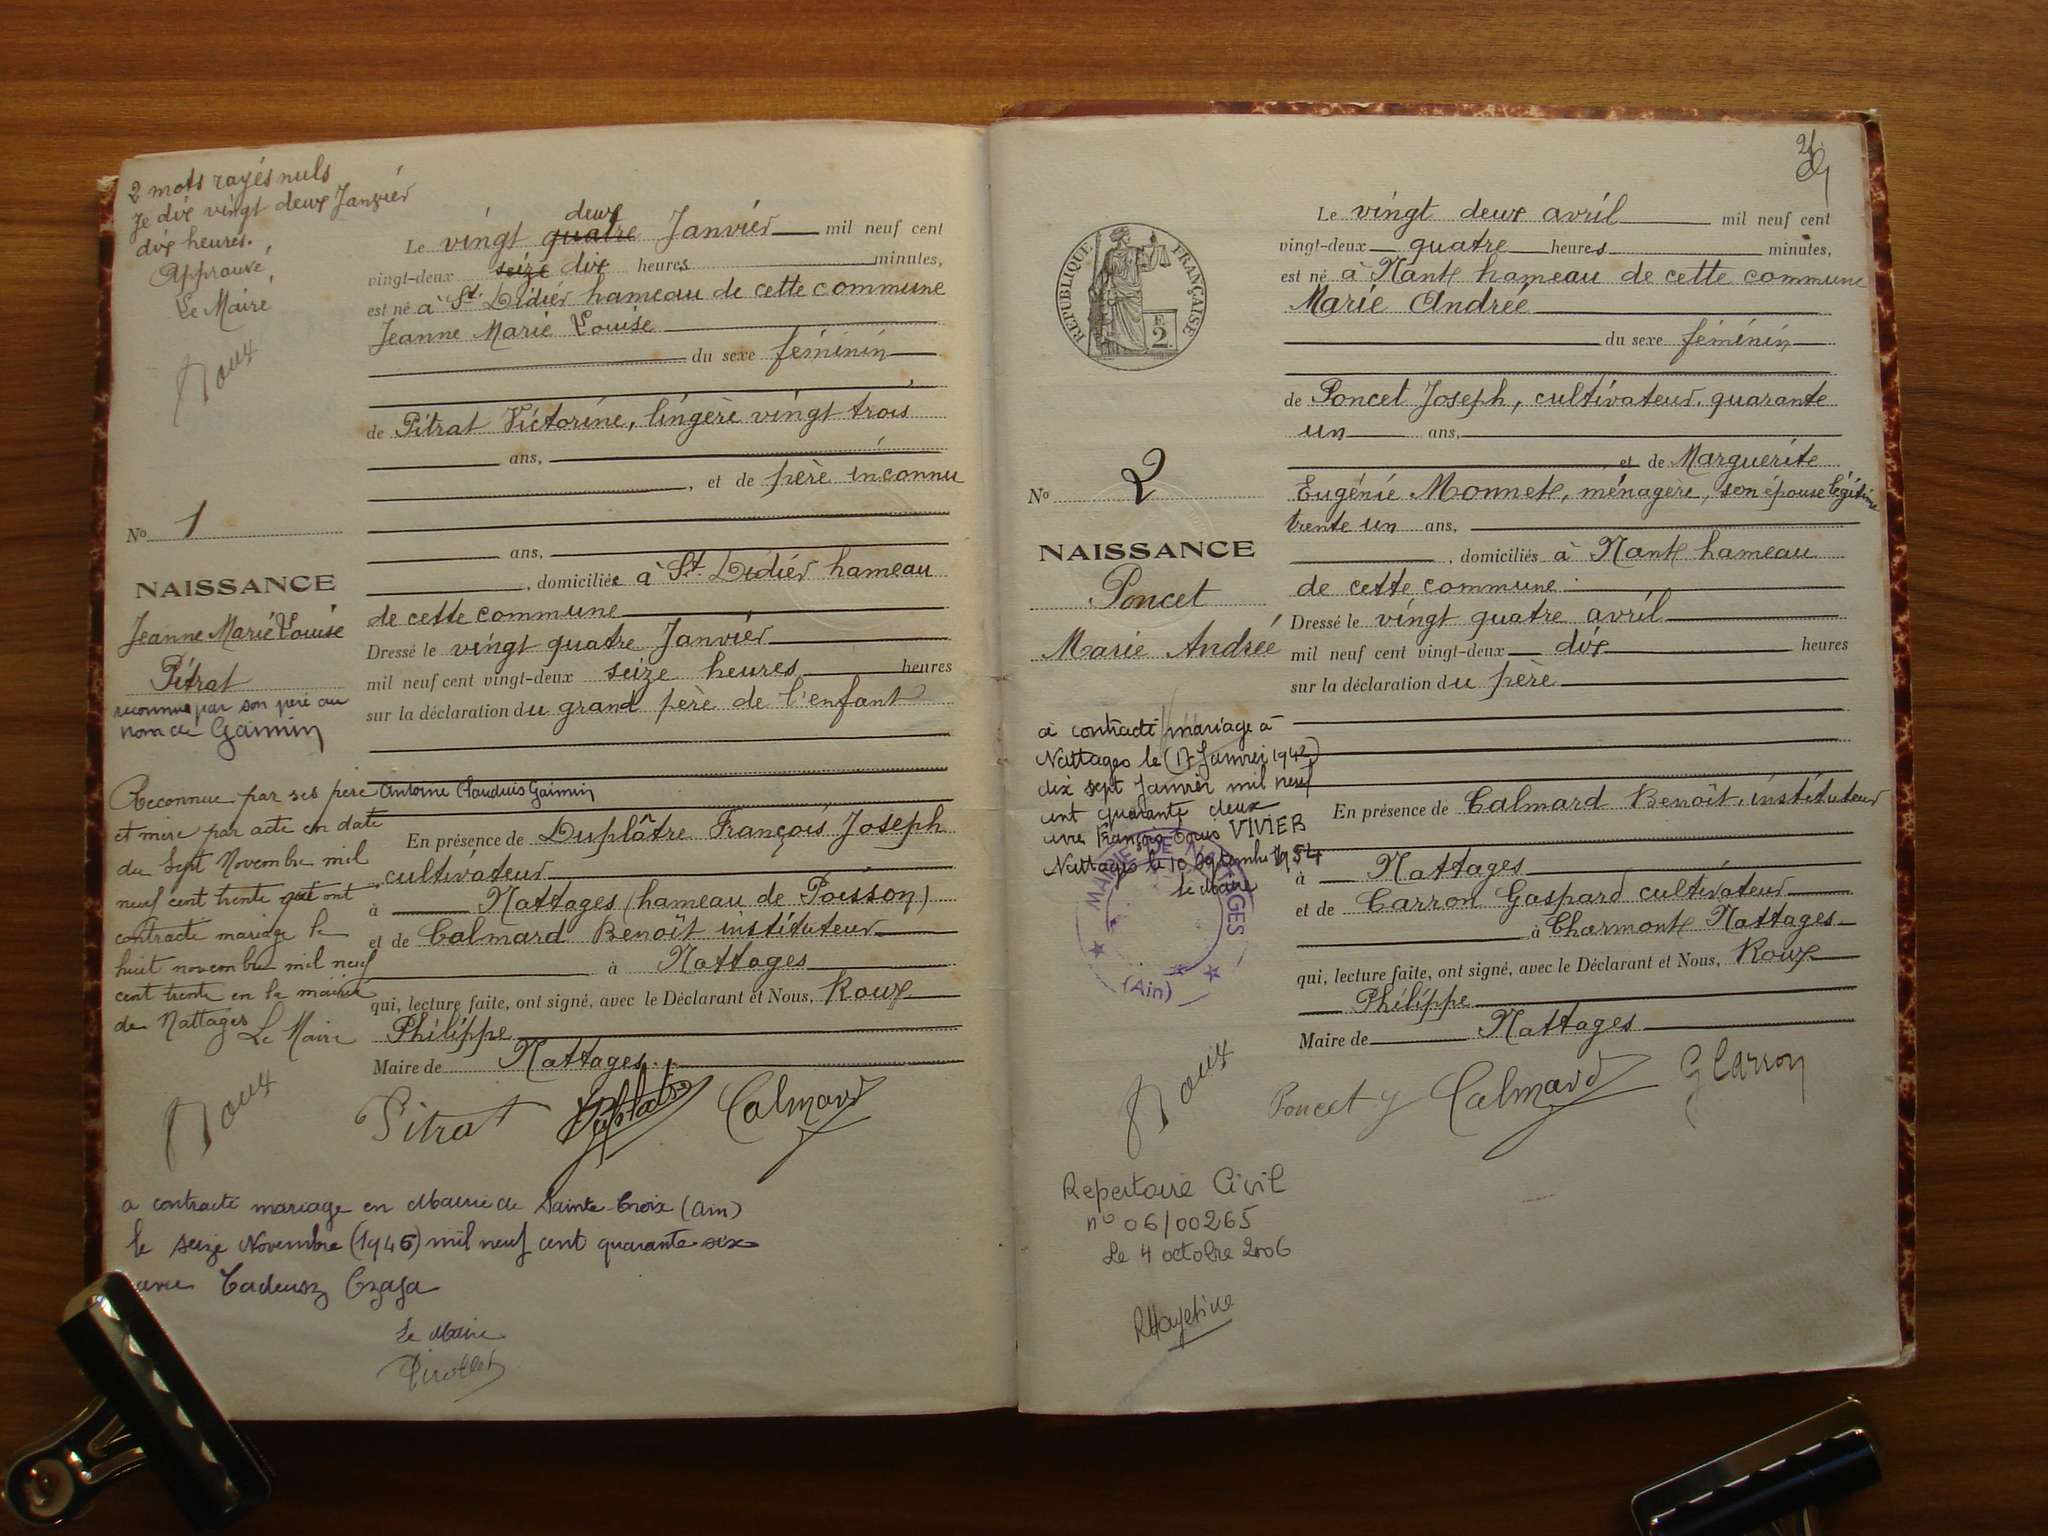 2 mots rayés nuls
Je dis vingt deux Janvier
dix heures.
Approuvé,
Le Maire,
Roux
Le vingt quatre deux Janvier mil neuf cent
vingt-deux seize dix heures minutes,
est né à St Didier hameau de cette commune
Jeanne Marie Louise
du sexe féminin
de Pitrat Victorine, lingère vingt trois
ans,
, et de père inconnu
No 1
ans,
, domiciliée à St Didier hameau
de cette commune
NAISSANCE
Jeanne Marie Louise
Pitrat
reconnue par son père au
nom de Gaimin
Dressé le vingt quatre Janvier
mil neuf cent vingt-deux seize heures heures
sur la déclaration du grand père de l'enfant
Reconnue par ses père Antoine Claudius Gaimin
et mère par acte en date
du sept Novembre mil
neuf cent trente qui ont
contracté mariage le
huit novembre mil neuf
cent trente en la mairie
de Nattages Le Maire
Roux
En présence de Duplâtre François Joseph
cultivateur
à Nattages (hameau de Poisson)
et de Calmard Benoît instituteur
à Nattages
qui, lecture faite, ont signé, avec le Déclarant et Nous, Roux
Philippe
Maire de Nattages
Pitrat Duplatre Calmard
a contracté mariage en Mairie de Sainte-Croix (Ain)
le seize Novembre (1946) mil neuf cent quarante-six
avec Tadeusz Czaja
Le Maire
2
Le vingt deux avril mil neuf cent
vingt-deux quatre heures minutes,
est né à Nant hameau de cette commune
Marie Andrée
du sexe féminin
RÉPUBLIQUE FRANÇAISE
F.
2
de Poncet Joseph, cultivateur, quarante
un ans,
et de Marguerite
Eugénie Monnet, ménagère, son épouse légitime
trente un ans,
, domiciliés à Nant hameau
de cette commune
No 2
NAISSANCE
Poncet
Marie Andrée
Dressé le vingt quatre avril
mil neuf cent vingt-deux dix heures
sur la déclaration du père
a contracté mariage à
Nattages le (17 Janvier 1942)
dix sept Janvier mil neuf
cent quarante deux
avec François VIVIER
Nattages le 10 Septembre 1954
Le Maire
MAIRIE DE NATTAGES
(Ain)
Roux
En présence de Calmard Benoît, instituteur
à Nattages
et de Carron Gaspard cultivateur
à Charmont Nattages
qui, lecture faite, ont signé, avec le Déclarant et Nous, Roux
Philippe
Maire de Nattages
Poncet J Calmard G Carron
Repertoire Civil
n° 06/00265
Le 4 octobre 2006